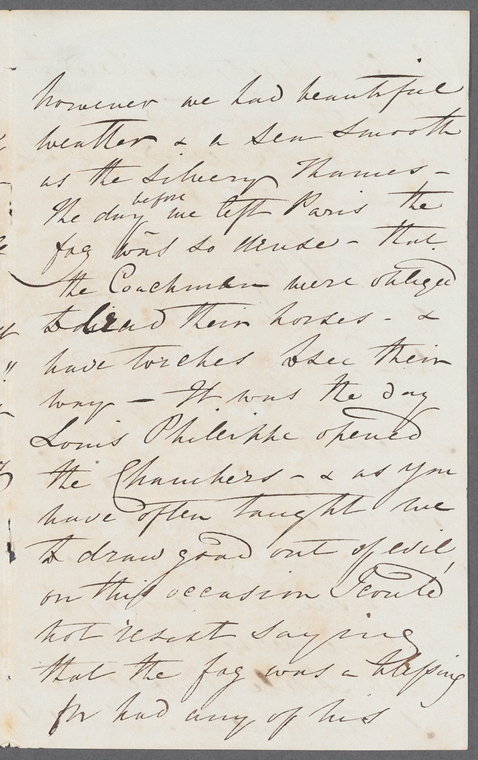 however we had beautiful
weather & a Sea Smooth
as the Silvery Thames -
before
The day we left Paris the
fog was so dense - that
the Coachmen were obliged
to lead their horses - &
have torches to see their
way - It was the day
Louis Philippe opened
the Chambers - & as you
have often taught me
to draw good out of evil,
on this occasion I could
not resist saying
that the fog was a blessing
for had any of his